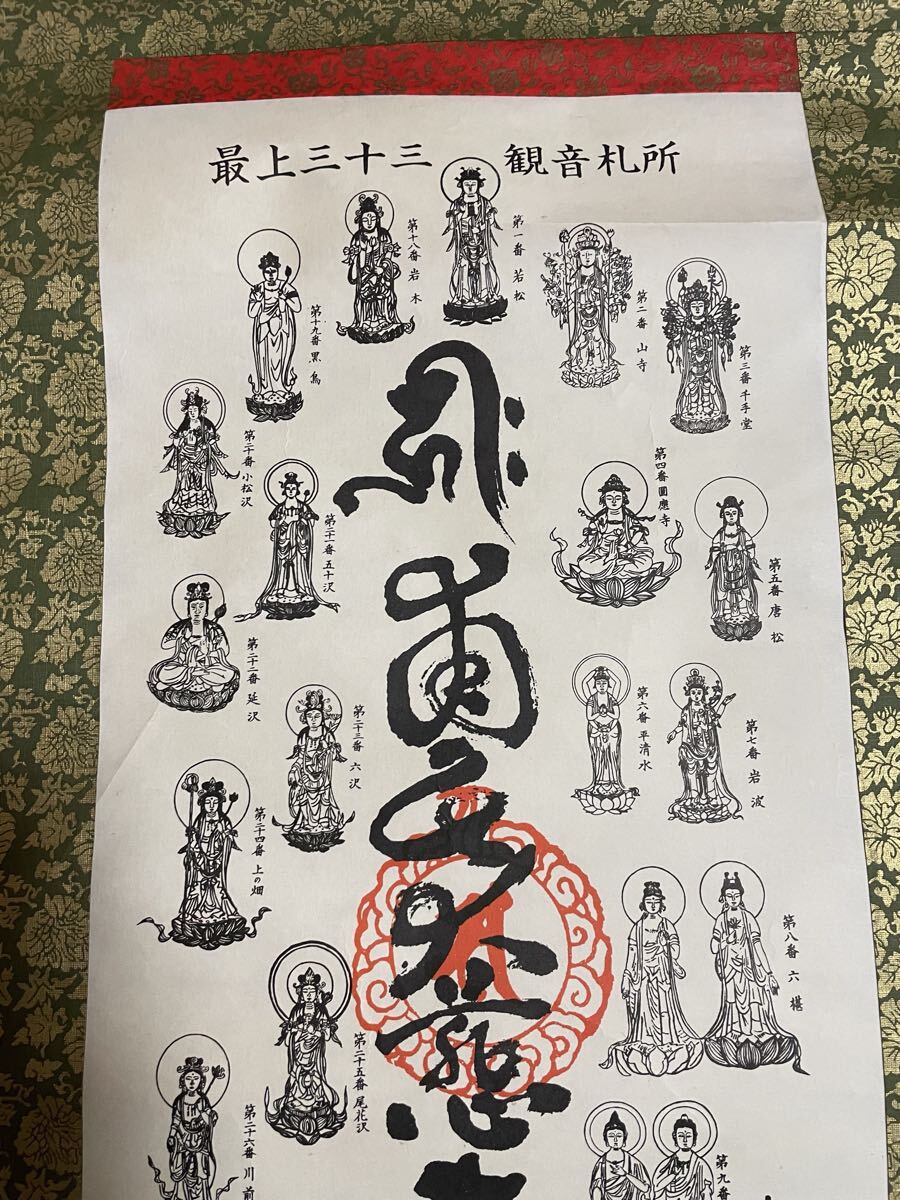 最上三十三 観音札所
第一番 若松
第二番 山寺
第三番 千手堂
第四番 圓應寺
第五番 唐松
第六番 平清水
第七番 岩波
第八番 六椹
第九番
第十八番 岩木
第十九番 黒鳥
第二十番 小松沢
第二十一番 五十沢
第二十二番 延沢
第二十三番 六沢
第二十四番 上の畑
第二十五番 尾花沢
第二十六番 川前
南無大慈